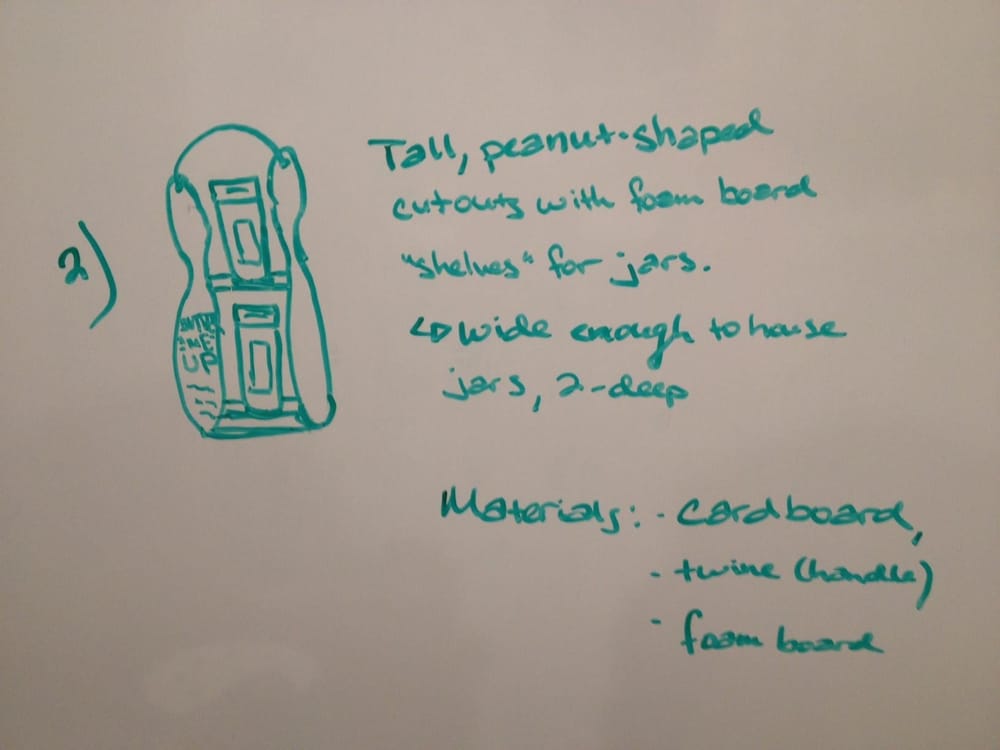 2)
Tall, peanut-shaped
cutouts with foam board
"shelves" for jars.
↳ wide enough to house
jars, 2-deep
ME
UP
Materials: - cardboard,
- twine (handle)
- foam board